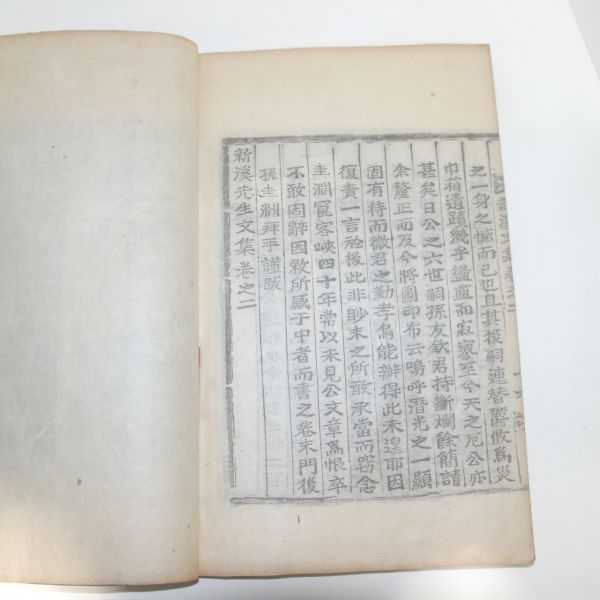 之一身之憾而已也且其後嗣連替鬱攸爲災
巾箱遺蹟幾乎蕩盡而寂寥至今天之厄公亦
甚矣日公之六世嗣孫友欽君持斷爛餘簡請
余釐正而及今將圖印布云嗚呼潛光之一顯
固有待而微君之勤孝烏能辦得此未遑耶因
復責一言於後此非眇末之所敢承當而窃念
圭淵竄客峽四十年常以未見公文章爲恨卒
不敢固辭因敘所感于中者而書之卷末門後
孫圭淵拜手謹跋
新溪先生文集卷之二